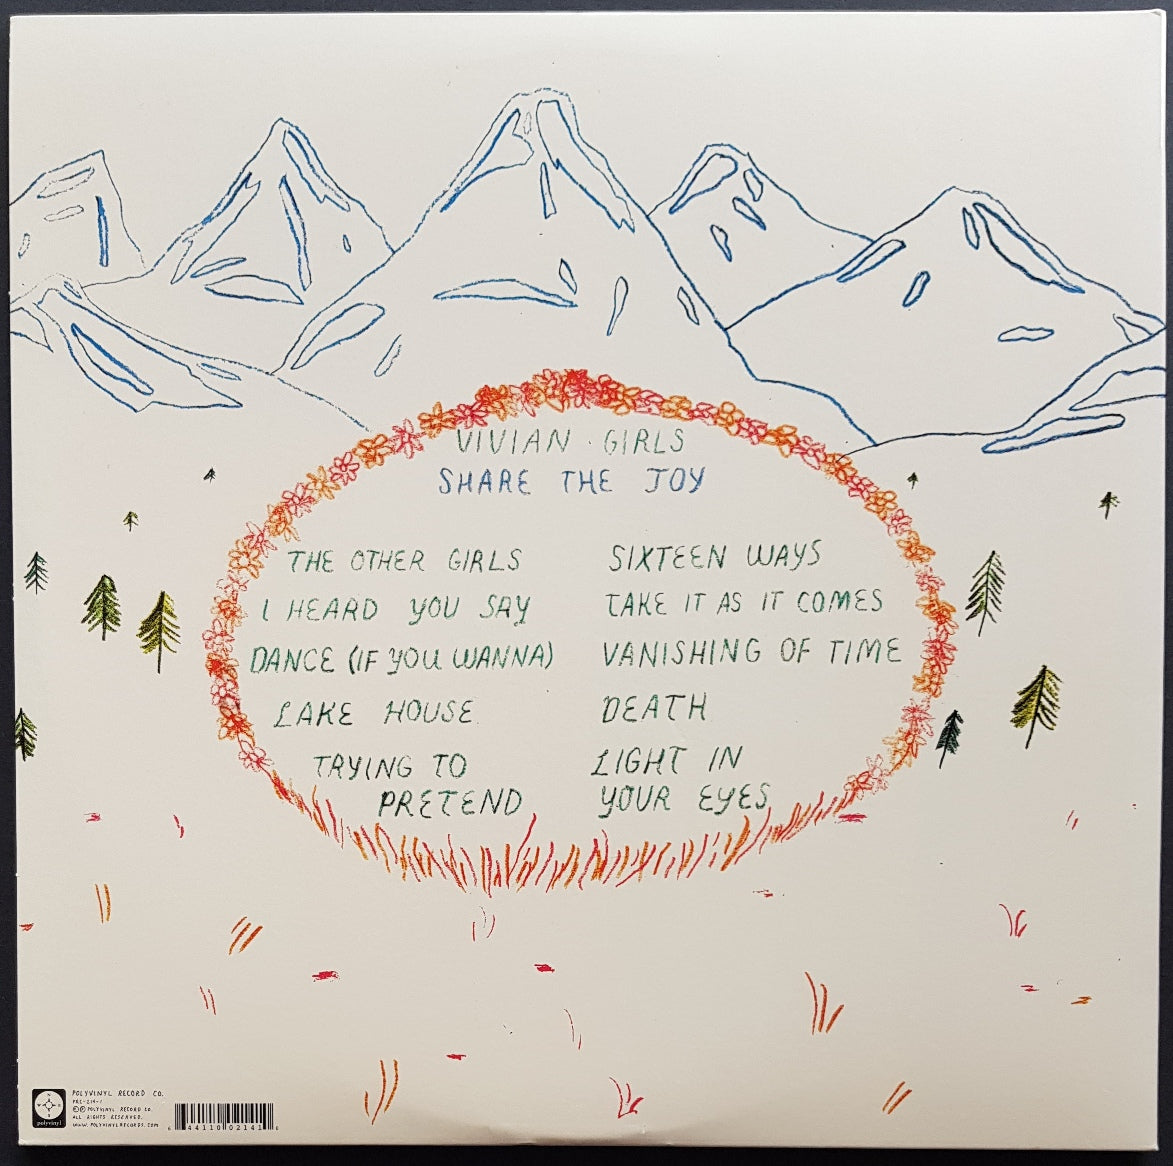 VIVIAN GIRLS
SHARE THE JOY
THE OTHER GIRLS
I HEARD YOU SAY
DANCE (IF YOU WANNA)
LAKE HOUSE
TRYING TO
PRETEND
SIXTEEN WAYS
TAKE IT AS IT COMES
VANISHING OF TIME
DEATH
LIGHT IN
YOUR EYES
polyvinyl
POLYVINYL RECORD CO.
PRC-214-1
©℗ POLYVINYL RECORD CO.
ALL RIGHTS RESERVED.
WWW.POLYVINYLRECORDS.COM
6 44110 02141